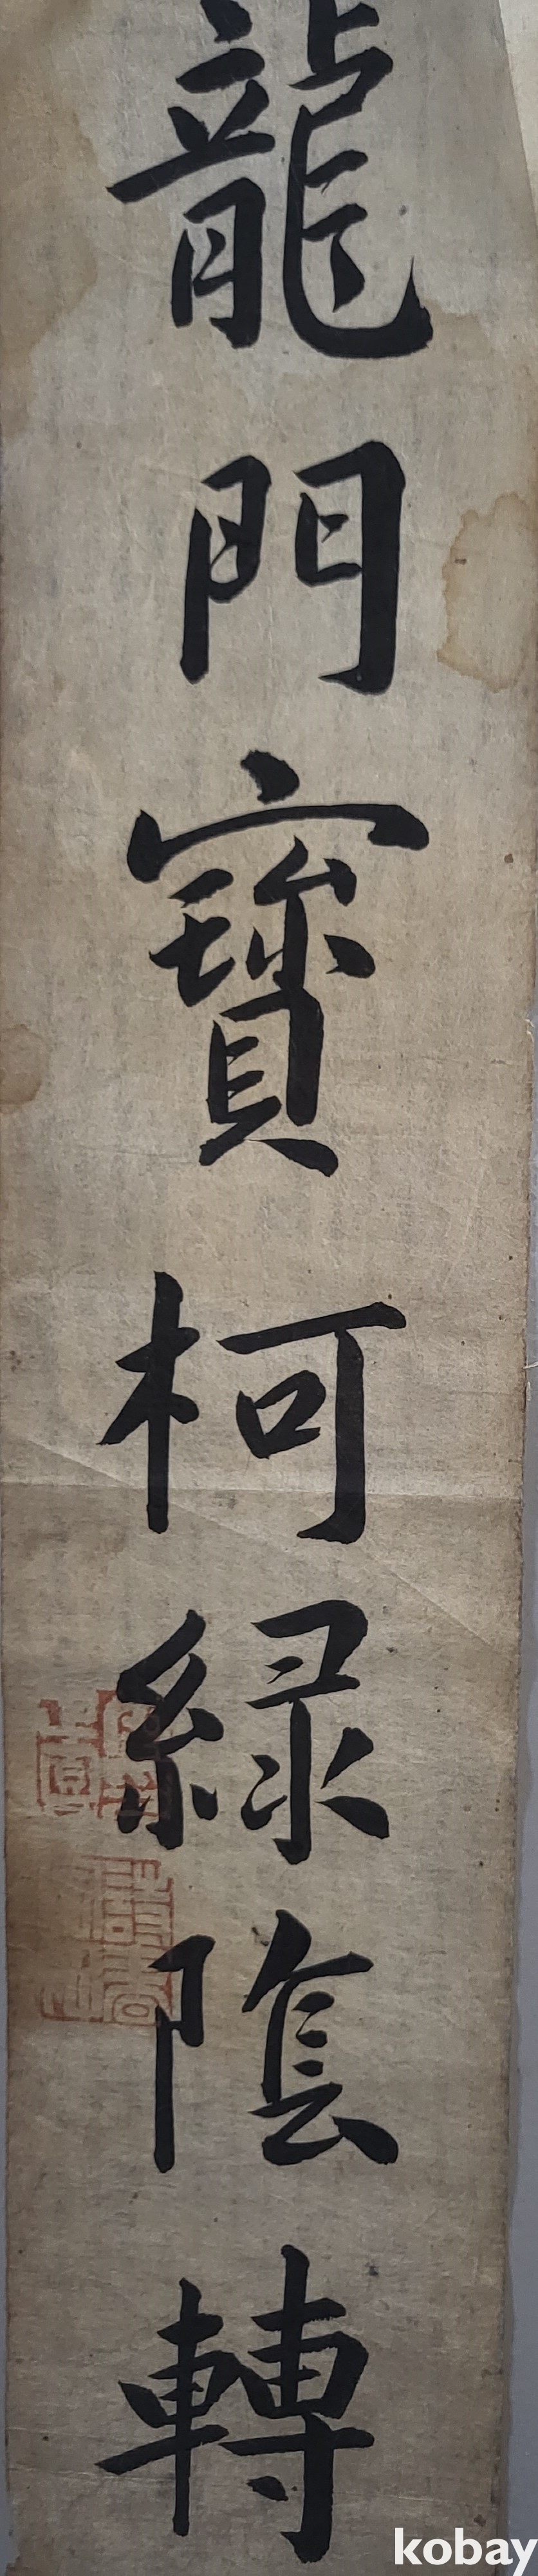 龍門寶柯緑陰轉
kobay